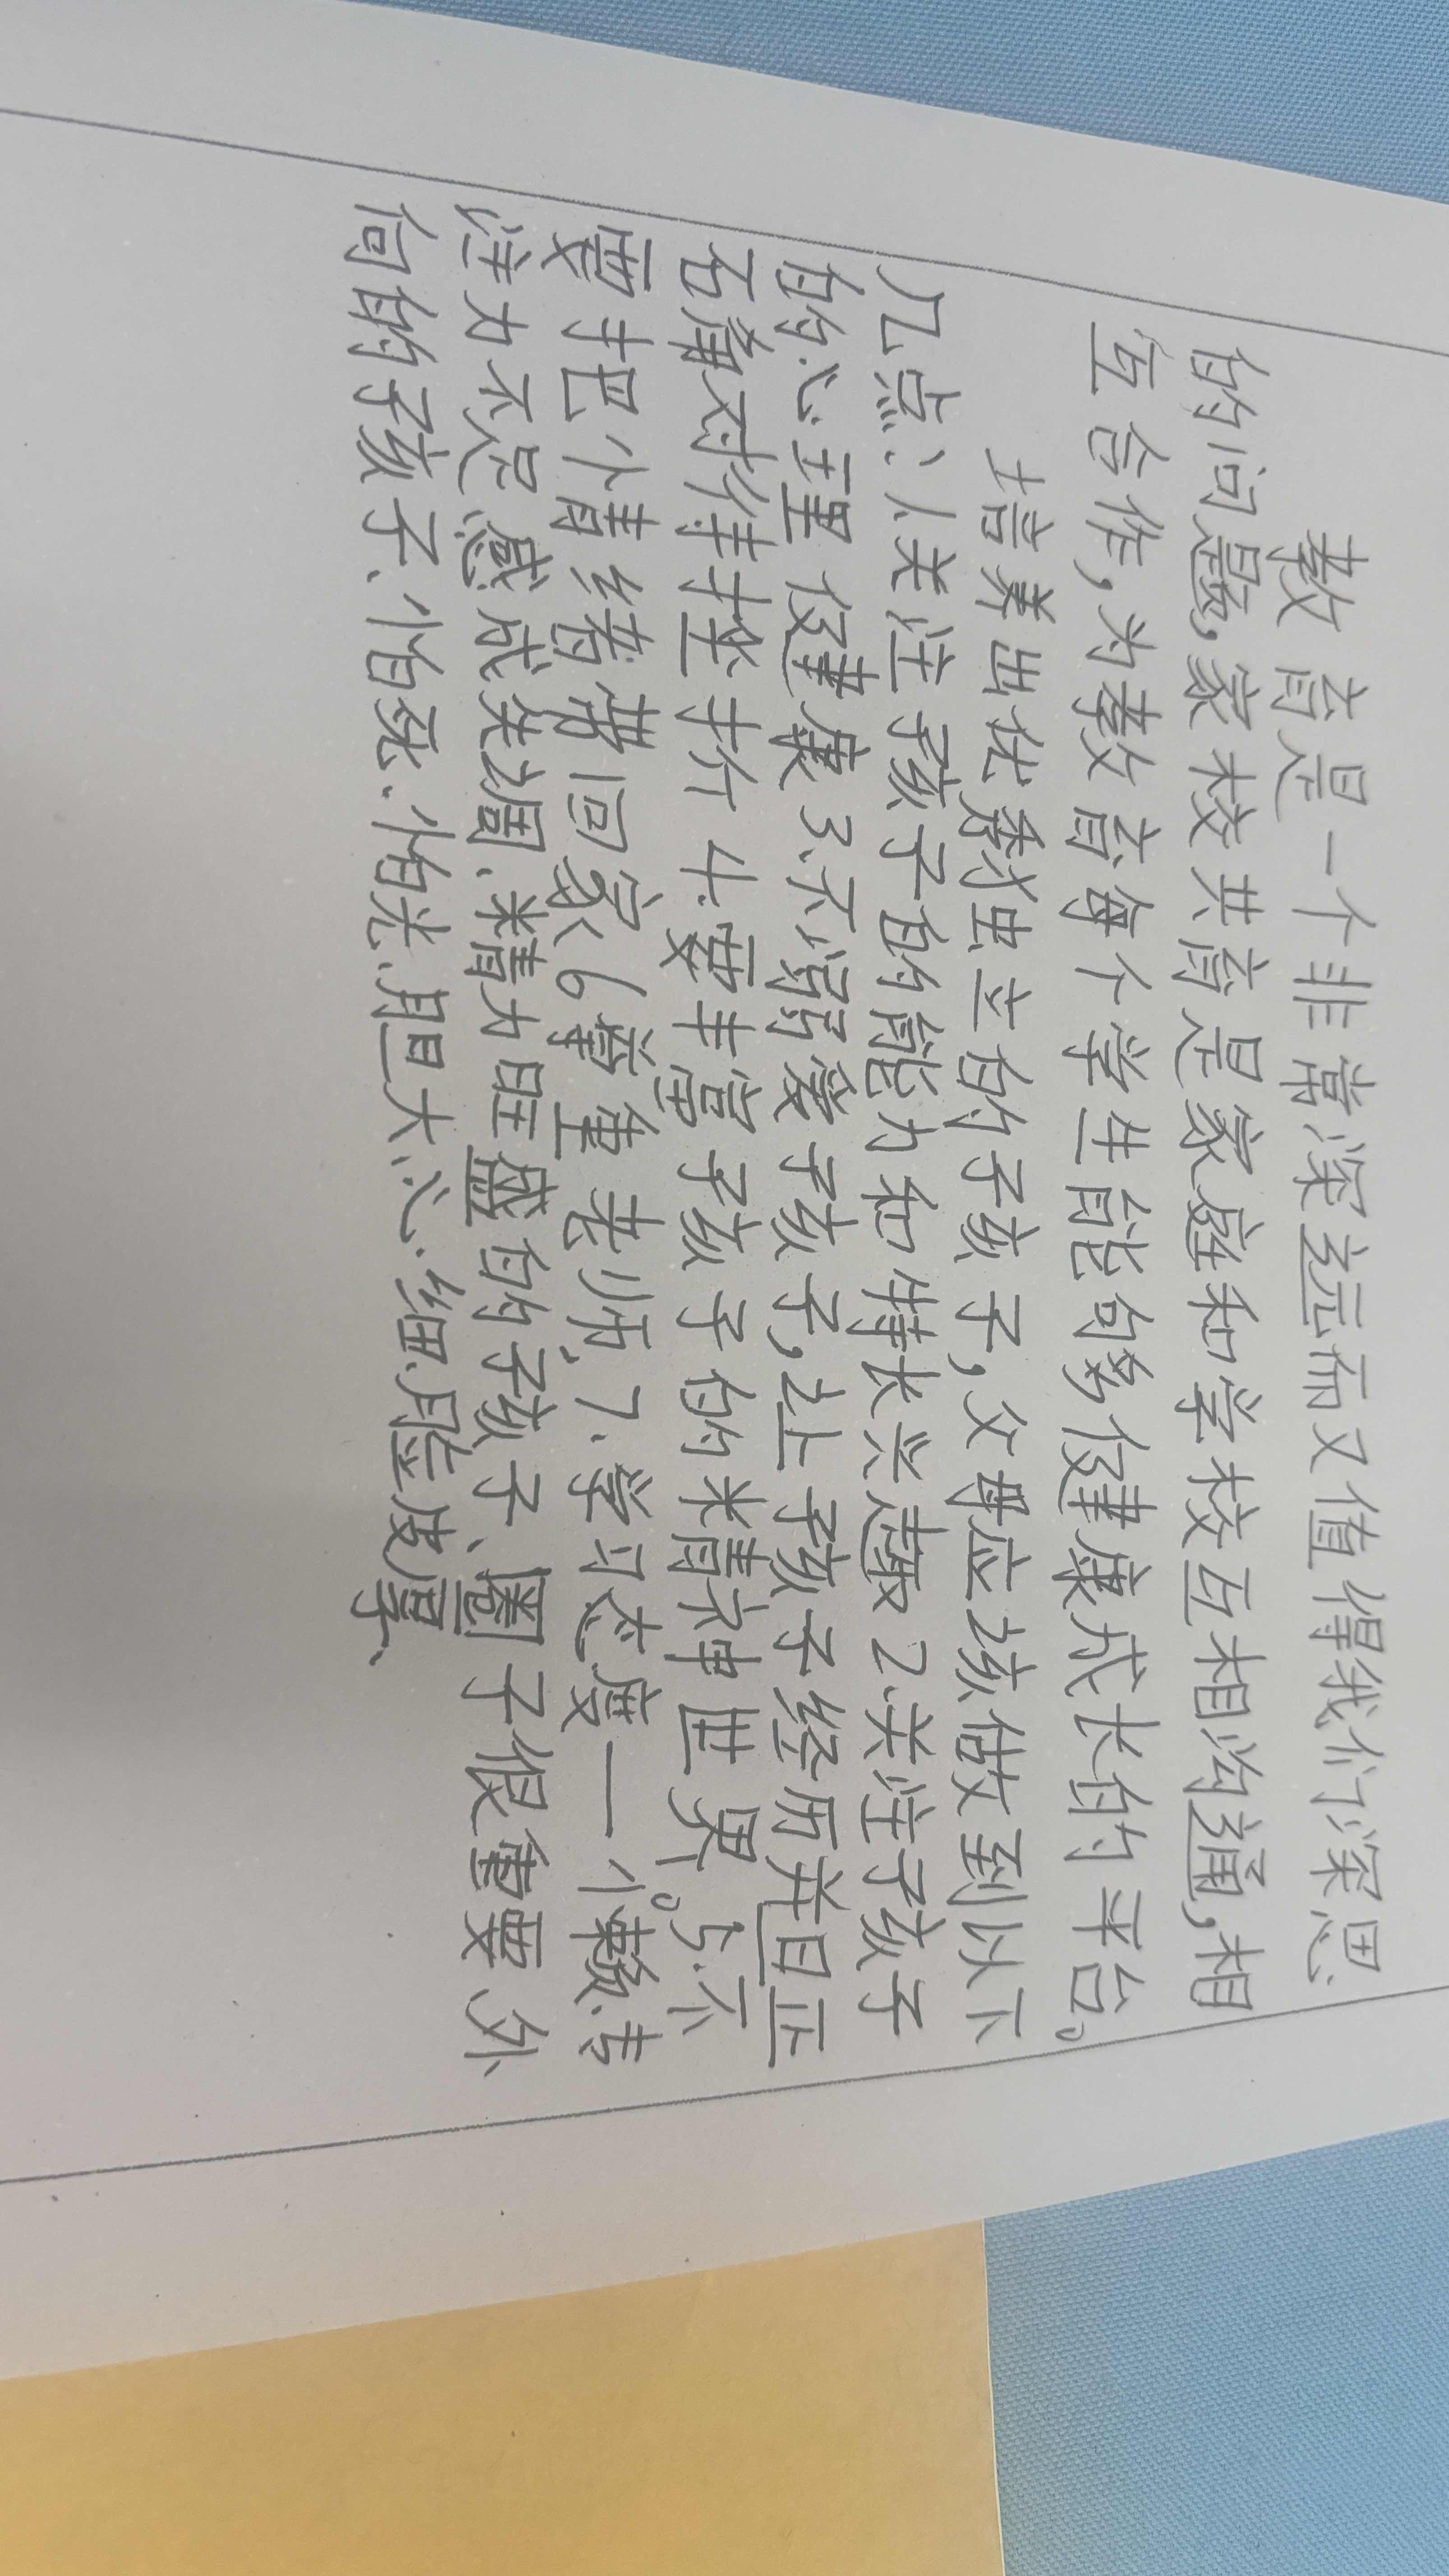 教育是一个非常深远而又值得我们深思
的问题,家校共育是家庭和学校互相沟通,相
互合作,为教育每个学生能够健康成长的平台。
培养出优秀独立的孩子,父母应该做到以下
几点:1.关注孩子的能力和特长兴趣2.关注孩子
的心理健康3.不溺爱孩子,让孩子经历并且正
确对待挫折4.要丰富孩子的精神世界。5.不
要把情绪带回家6尊重老师,7.学习态度一个懒、专
注力不足、感成失调、精力旺盛的孩子、圈子很重要、外
向的孩子、怕死、怕光、胆大、心细、脸皮厚、